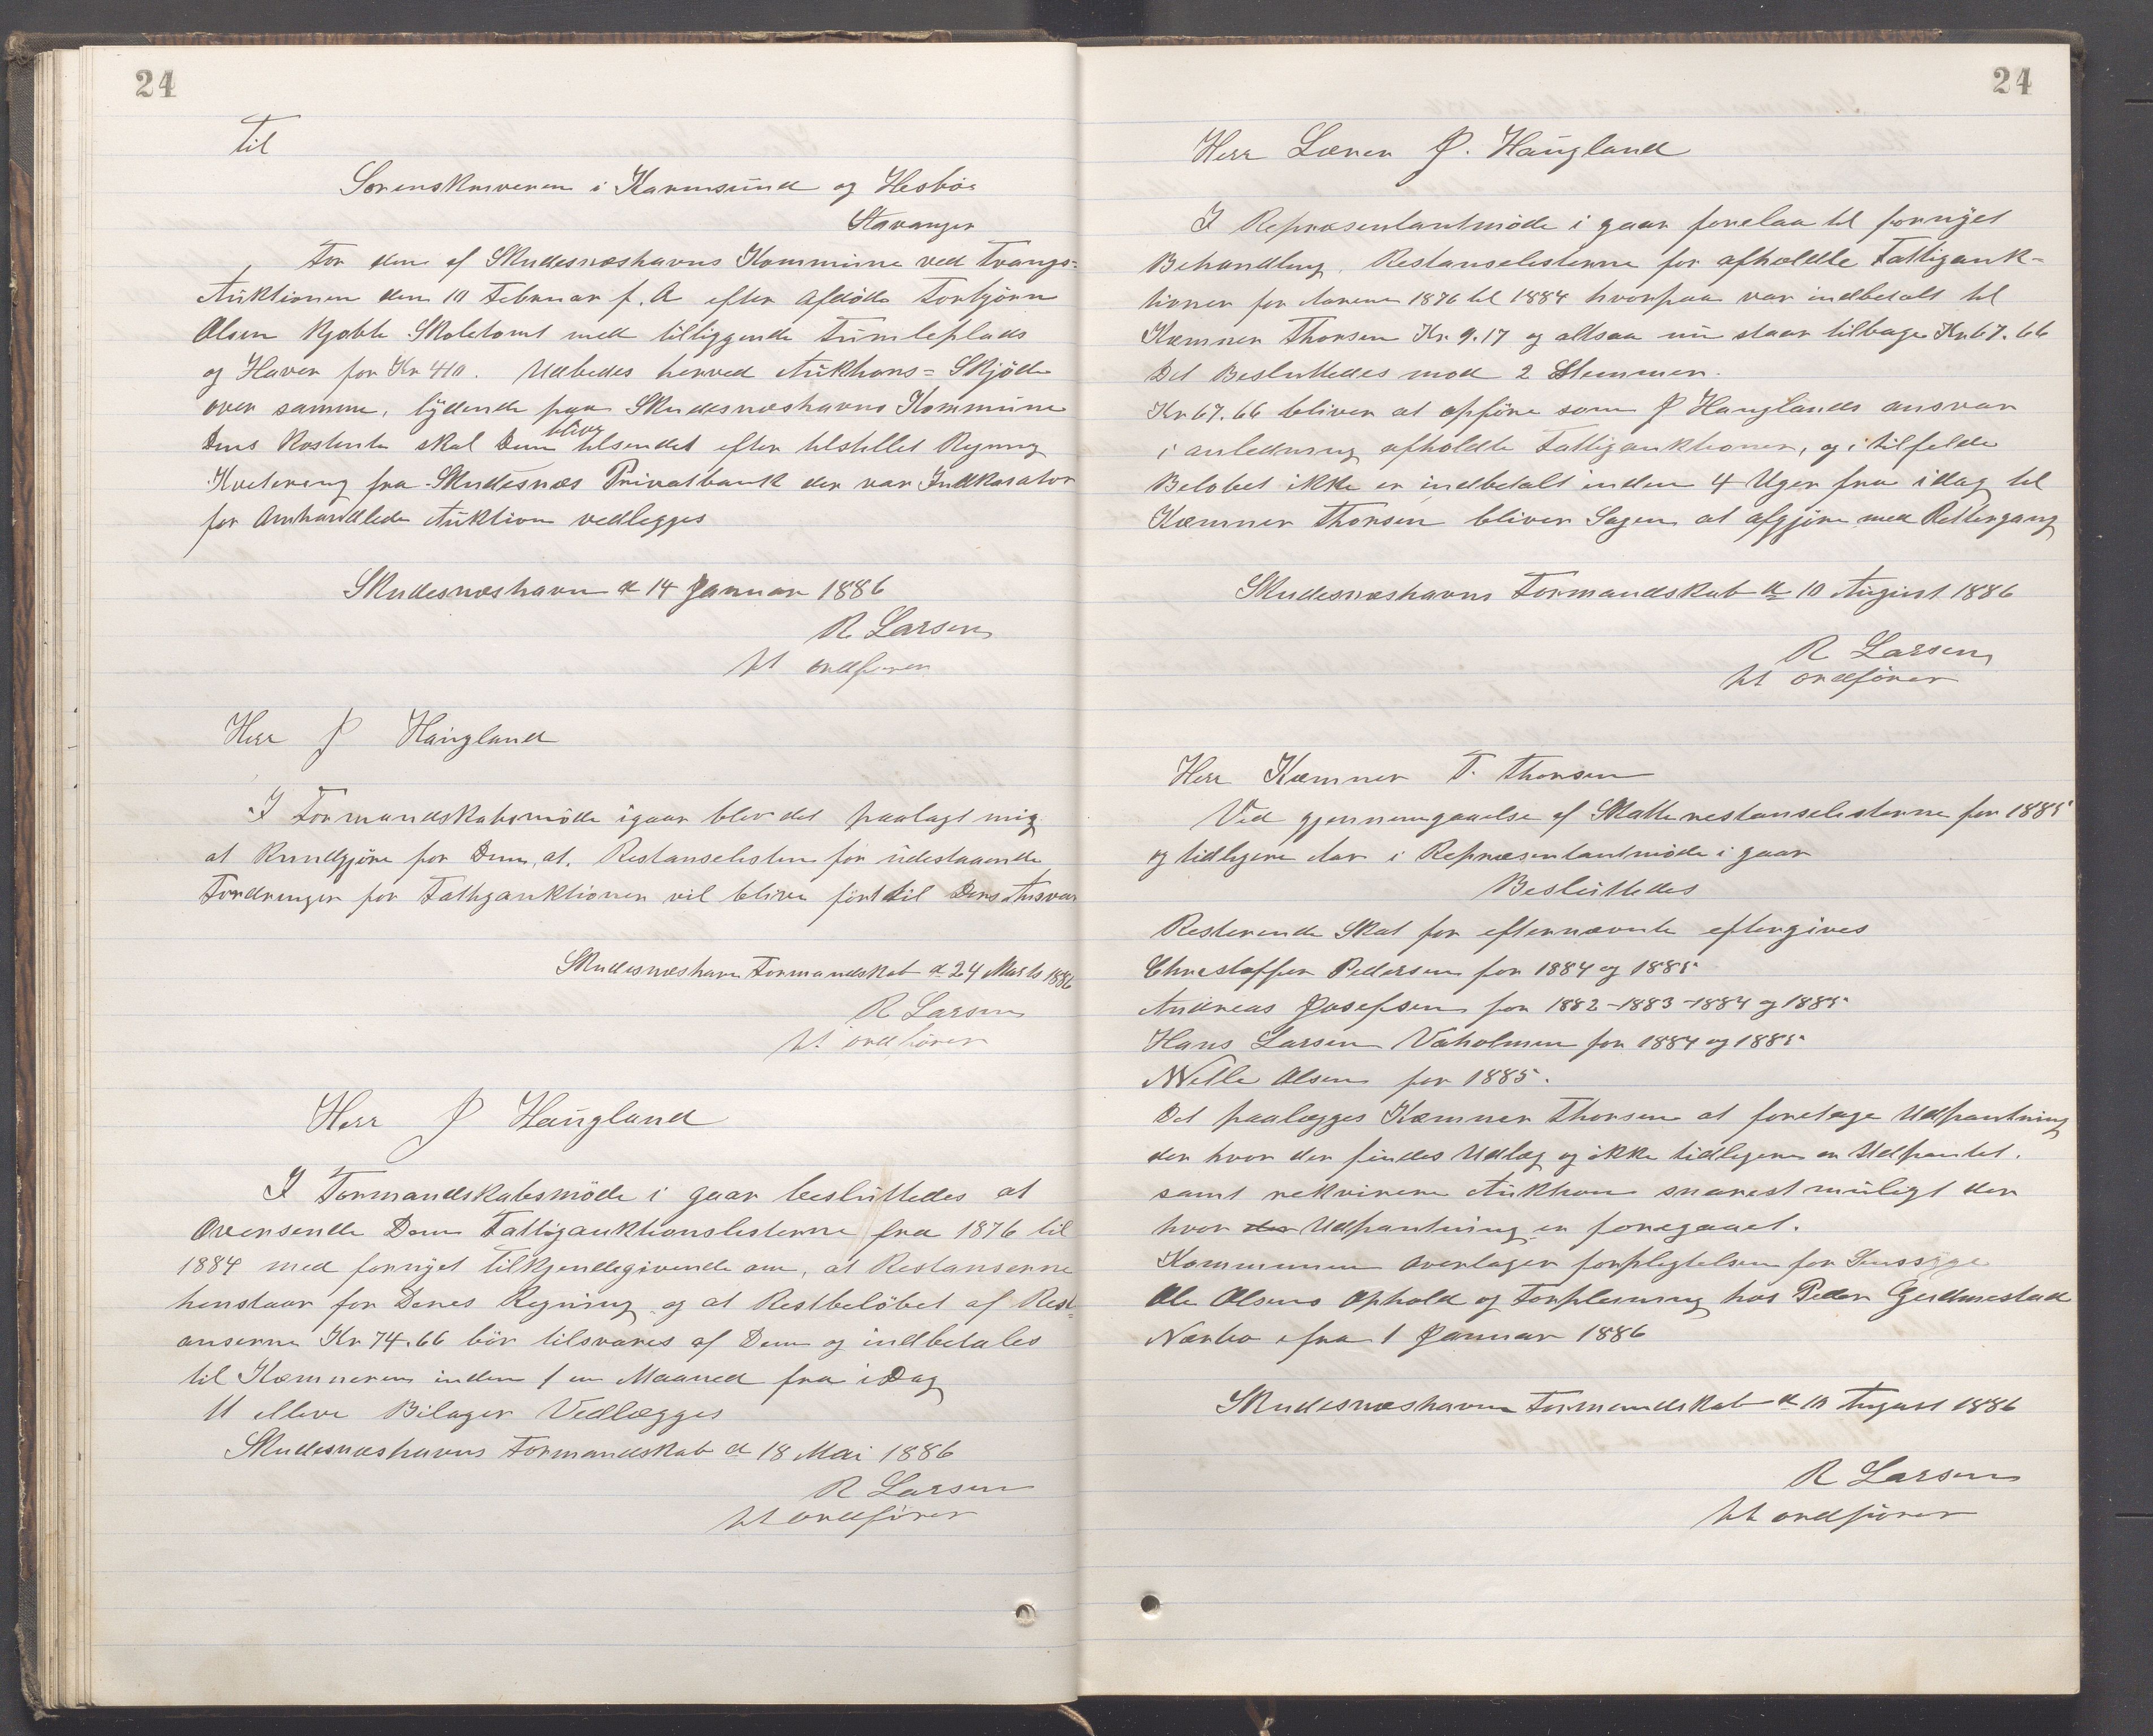 24
Til
Sorenskriveren i Karmsund og Hesbø
Stavanger
For den af Skudesnæshavns Kommune ved Tvangs=
Auktionen den 10 Februar f. A efter afdøde Torbjørn
Olsen kjøbte Skoletomt med tilliggende Tumleplads
og Haver for Kr 410. Udbedes herved Auktions= Skjøde
over samme, lydende paa Skudesnæshavns Kommune
blive
Deres Kostende skal Dem tilsendet efter tilstillet Regning
Kvitering fra Skudesnæs Privatbank der var Indkasator
for Omhandlede Auktion vedlegges
Skudesnæshavn d 14 Januar 1886
R Larsen
ht ordfører
Herr J Haugland
I Formandskabsmöde igaar blev det paalagt mig
at kundgjöre for Dem, at. Restanselisten for udestaaende
Fordringer for Fattigauktioner vil blive fört til Deres Ansvar
Skudesnæshavn Formandskab d 24 Marts 1886
R Larsen
ht ordförer
Herr J Haugland
I Formandskabsmöde i gaar besluttedes at
Oversende Dem Fattigauktionslisterne fra 1876 til
1884 med fornyet Tilkjendegivende om, at Restanserne
henstaar for Deres Regning og at Restbelöbet af Rest=
anserne Kr 74.66 bör tilsvares af Dem og indbetales
til Kæmneren inden 1 en Maaned fra i Dag
11 elleve Bilager Vedlægges
Skudesnæshavns Formandskab d 18 Mai 1886
R Larsen
ht ordförer
24
Herr Lærer J. Haugland
I Repræsentantmöde i gaar forelaa til fornyet
Behandling, Restanselisterne for afholdte Fattigauk=
tioner for Aarene 1876 til 1884 hvorpaa var indbetalt til
Kæmner Thorsen Kr. 9.17 og altsaa nu staar tilbage Kr 67.66
Det Besluttedes mod 2 Stemmer.
Kr 67.66 bliver at opföre som J Hauglands ansvar
i anledning afholdte Fattigauktioner, og i tilfelde
Belöbet ikke er indbetalt inden 4 Uger fra idag til
Kæmner Thorsen bliver Sagen at afgjöre med Rettergang
Skudesnæshavns Formandskab d 10 August 1886
R Larsen
ht ordförer
Herr Kæmner T. Thorsen
Ved gjennemgaaelse af Skatterestanselisterne for 1885
og tidligere Aar i Repræsentantmöde i gaar
Besluttedes
Resterende Skat for efternævnte eftergives
Christoffer Pedersen for 1884 og 1885
Andreas Josefsen for 1882-1883-1884 og 1885
Hans Larsen Vaholmen for 1884 og 1885
Nille Olsen for 1885.
Det paalegges Kæmner Thorsen at foretage Udpantning
der hvor der findes Udlæg og ikke tidligere er Udpantet.
samt rekvirere Auktion snarest muligt der
hvor der Udpantning er foregaaet.
Kommunen overtager forpligtelsen for Sinssyge
Ole Olsens Ophold og Forpleining hos Peder
Nærbo fra 1 Januar 1886
Skudesnæshavn Formandskab d 10 August 1886
R Larsen
ht ordförer